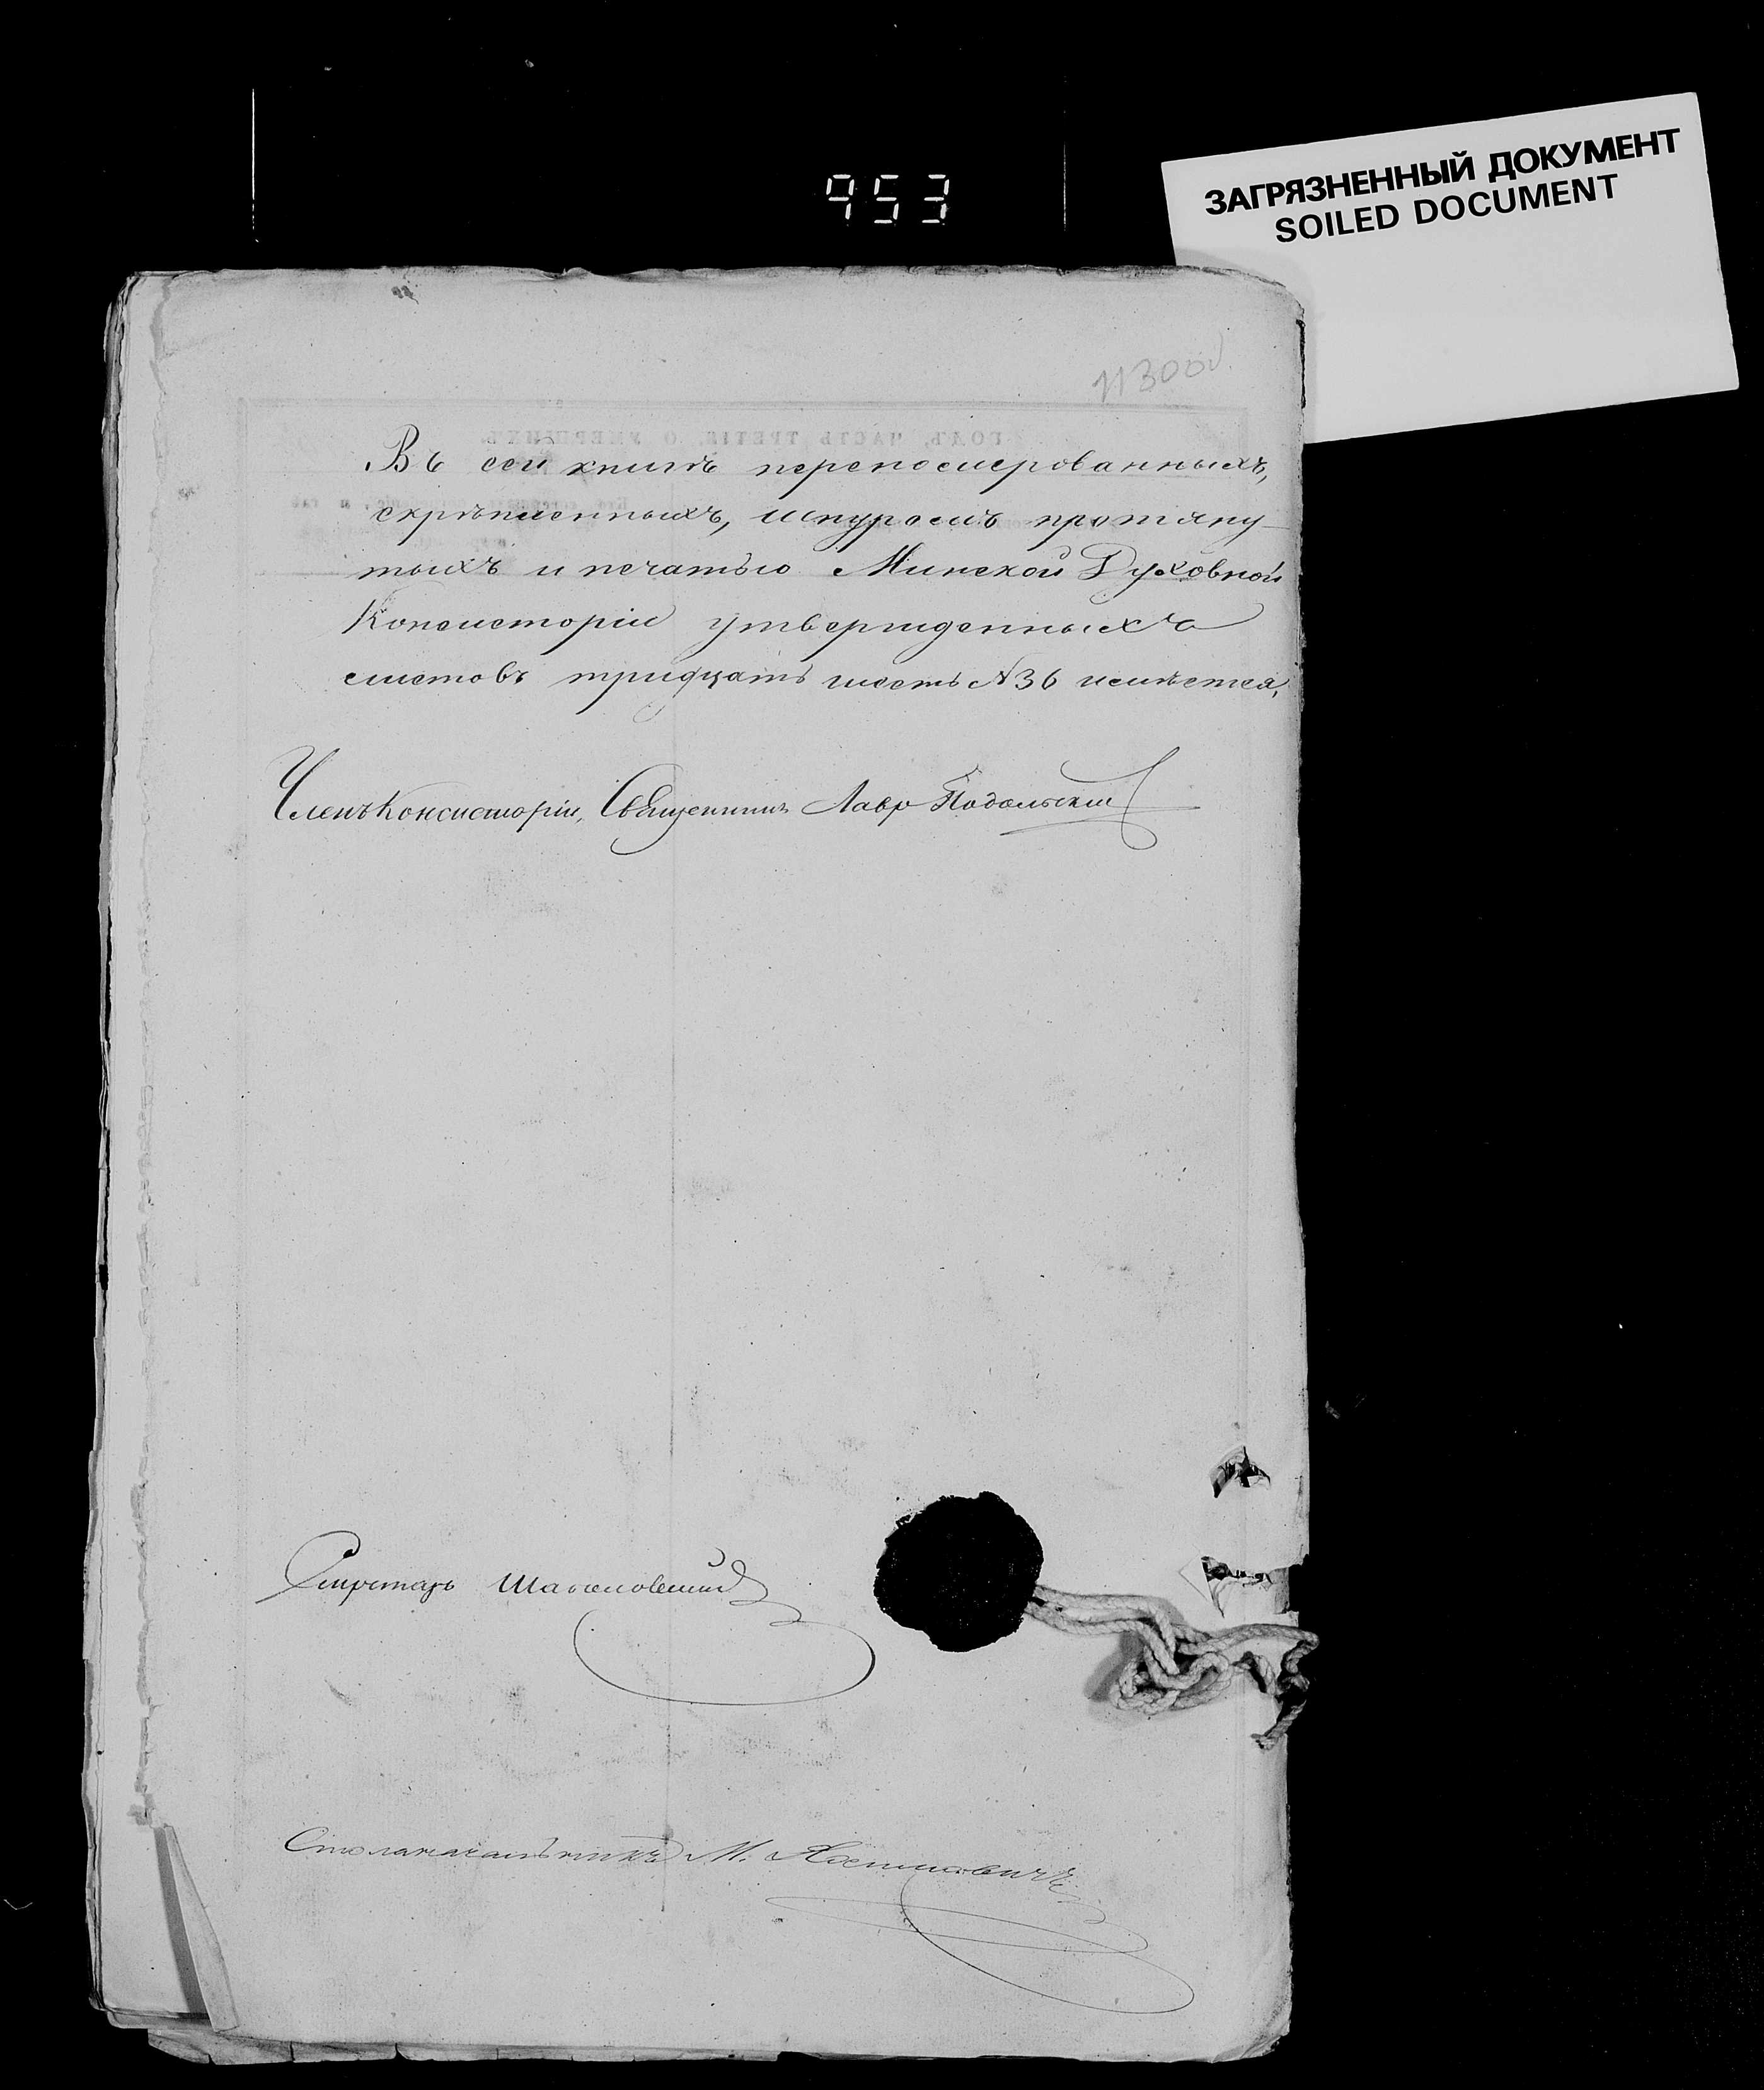 953
ЗАГРЯЗНЕННЫЙ ДОКУМЕНТ
SOILED DOCUMENT
ГОДЪ, ЧАСТЬ ТРЕТІЯ, О УМЕРШИХЪ.
Въ сей книгѣ перенумерованныхъ,
скрѣпленныхъ, шнуромъ протяну-
тыхъ и печатью Минской Духовной
Консисторіи утвержденныхъ
листовъ тридцать шесть №36 имѣется.
Членъ Консисторіи, Священникъ Лавр Подольскій
Секретарь
Столоначальникъ М.